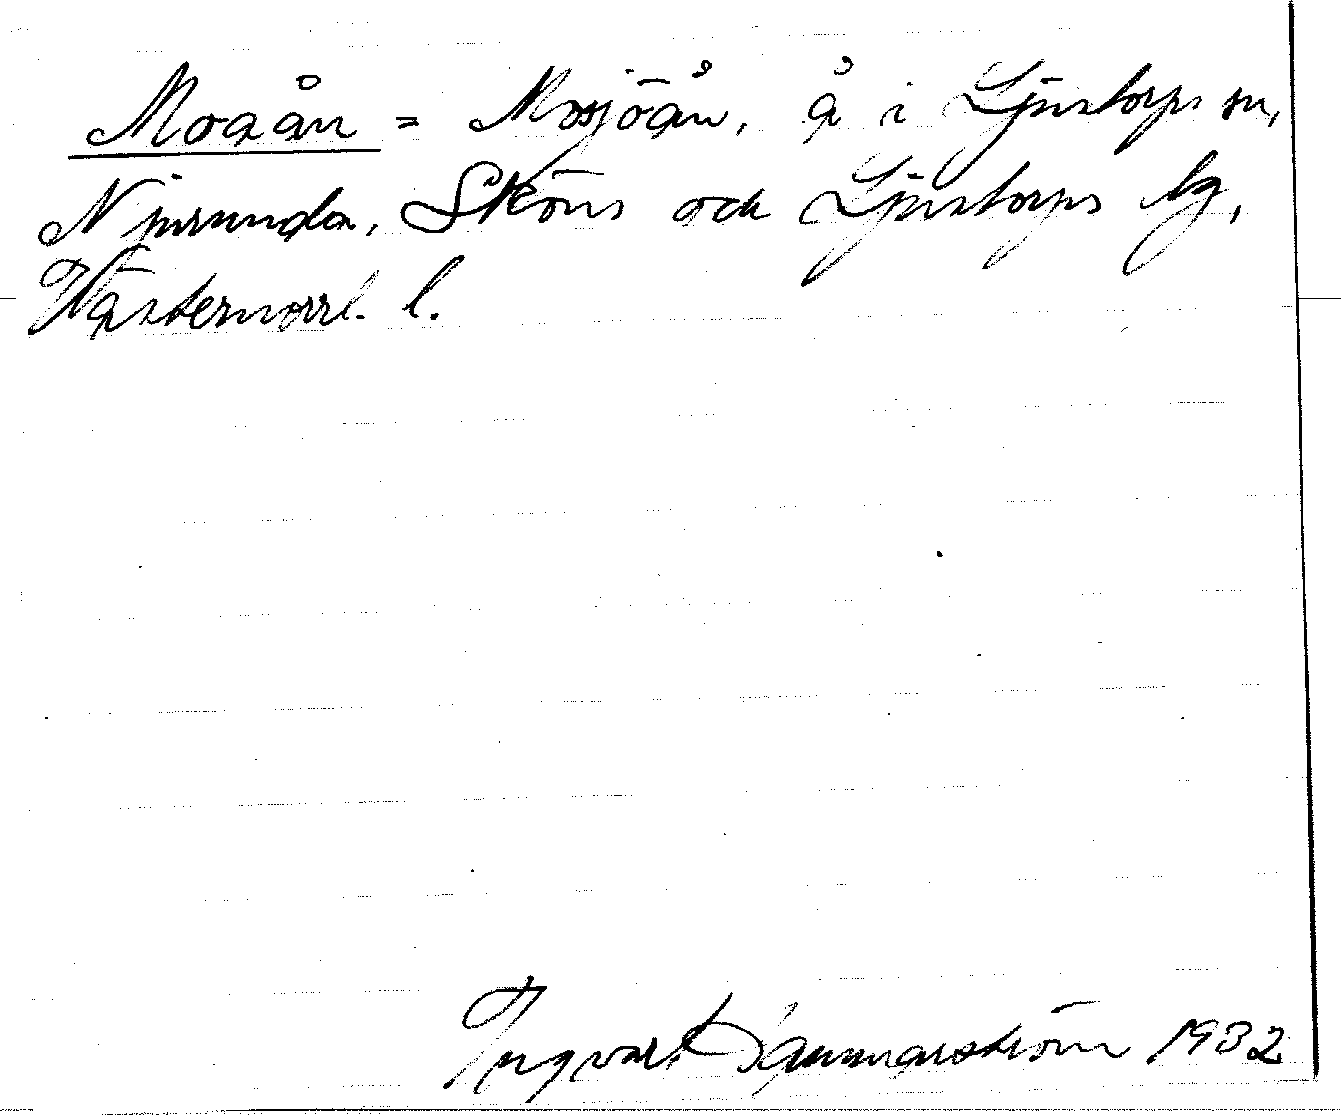 Moaån = Mosjöån, å i Ljustorps sn,
Njurunda, Sköns och Ljustorps tg,
Västernorrl. l.
Ingvart Hammarström 1932